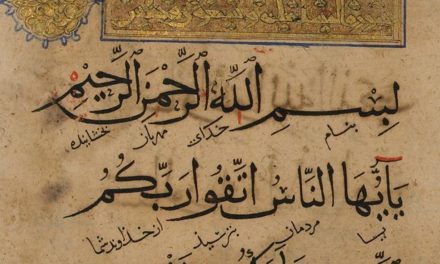 بِسْمِ اللَّهِ الرَّحْمٰنِ الرَّحِيمِ
بنام خدای مهربان بخشاینده
يَٰأَيُّهَا النَّاسُ اتَّقُوا رَبَّكُمُ
مردمان بترسید از خداوند شما